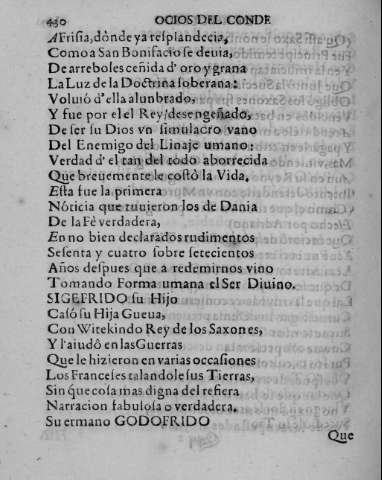 440 OCIOS DEL CONDE
A Frisia, dònde ya resplandecia,
Como a San Bonifacio se deuia,
De arreboles ceñida d' oro y grana
La Luz de la Doctrina soberana:
Voluiò d'ella alunbrado,
Y fue por el el Rey/desengeñado,
De ser su Dios vn simulacro vano
Del Enemigo del Linaje umano:
Verdad d' el tan del todo aborrecida
Que breuemente le costò la Vida.
Esta fue la primera
Nóticia que tuuieron los de Dania
De la Fè verdadera,
En no bien declarados rudimentos
Sesenta y cuatro sobre setecientos
Años despues que a redemirnos vino
Tomando Forma umana el Ser Diuino.
SIGEFRIDO su Hijo
Casó su Hija Gueua,
Con Witekindo Rey de los Saxones,
Y l'aiudò en las Guerras
Que le hizieron en varias occasiones
Los Franceses talandole sus Tierras,
Sin q̃ue cosa mas digna del refiera
Narracion fabulosa o verdadera.
Su ermano GODOFRIDO
Que